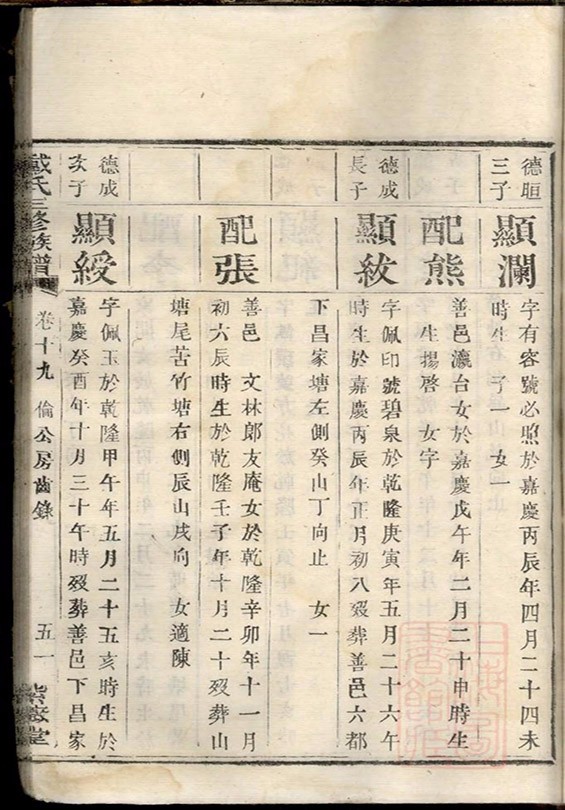 德晅
三子
顯瀾
字有容號必照於嘉慶丙辰年四月二十四未
時生 子一 女一
配熊
善邑瀛台女於嘉慶戊午年二月二十申時生
生揚啓 女字
德成
長子
顯紋
字佩印號碧泉於乾隆庚寅年五月二十六午
時生於嘉慶丙辰年正月初八歿葬善邑六都
下昌家塘左側癸山丁向止 女一
配張
善邑 文林郎友庵女於乾隆辛卯年十一月
初六辰時生於乾隆壬子年十月二十歿葬山
塘尾苦竹塘右側辰山戌向 女適陳
德成
次子
顯綬
字佩玉於乾隆甲午年五月二十五亥時生於
嘉慶癸酉年十月三十午時歿葬善邑下昌家
戴氏三修族譜 卷十九 倫公房齒錄 五一 堂